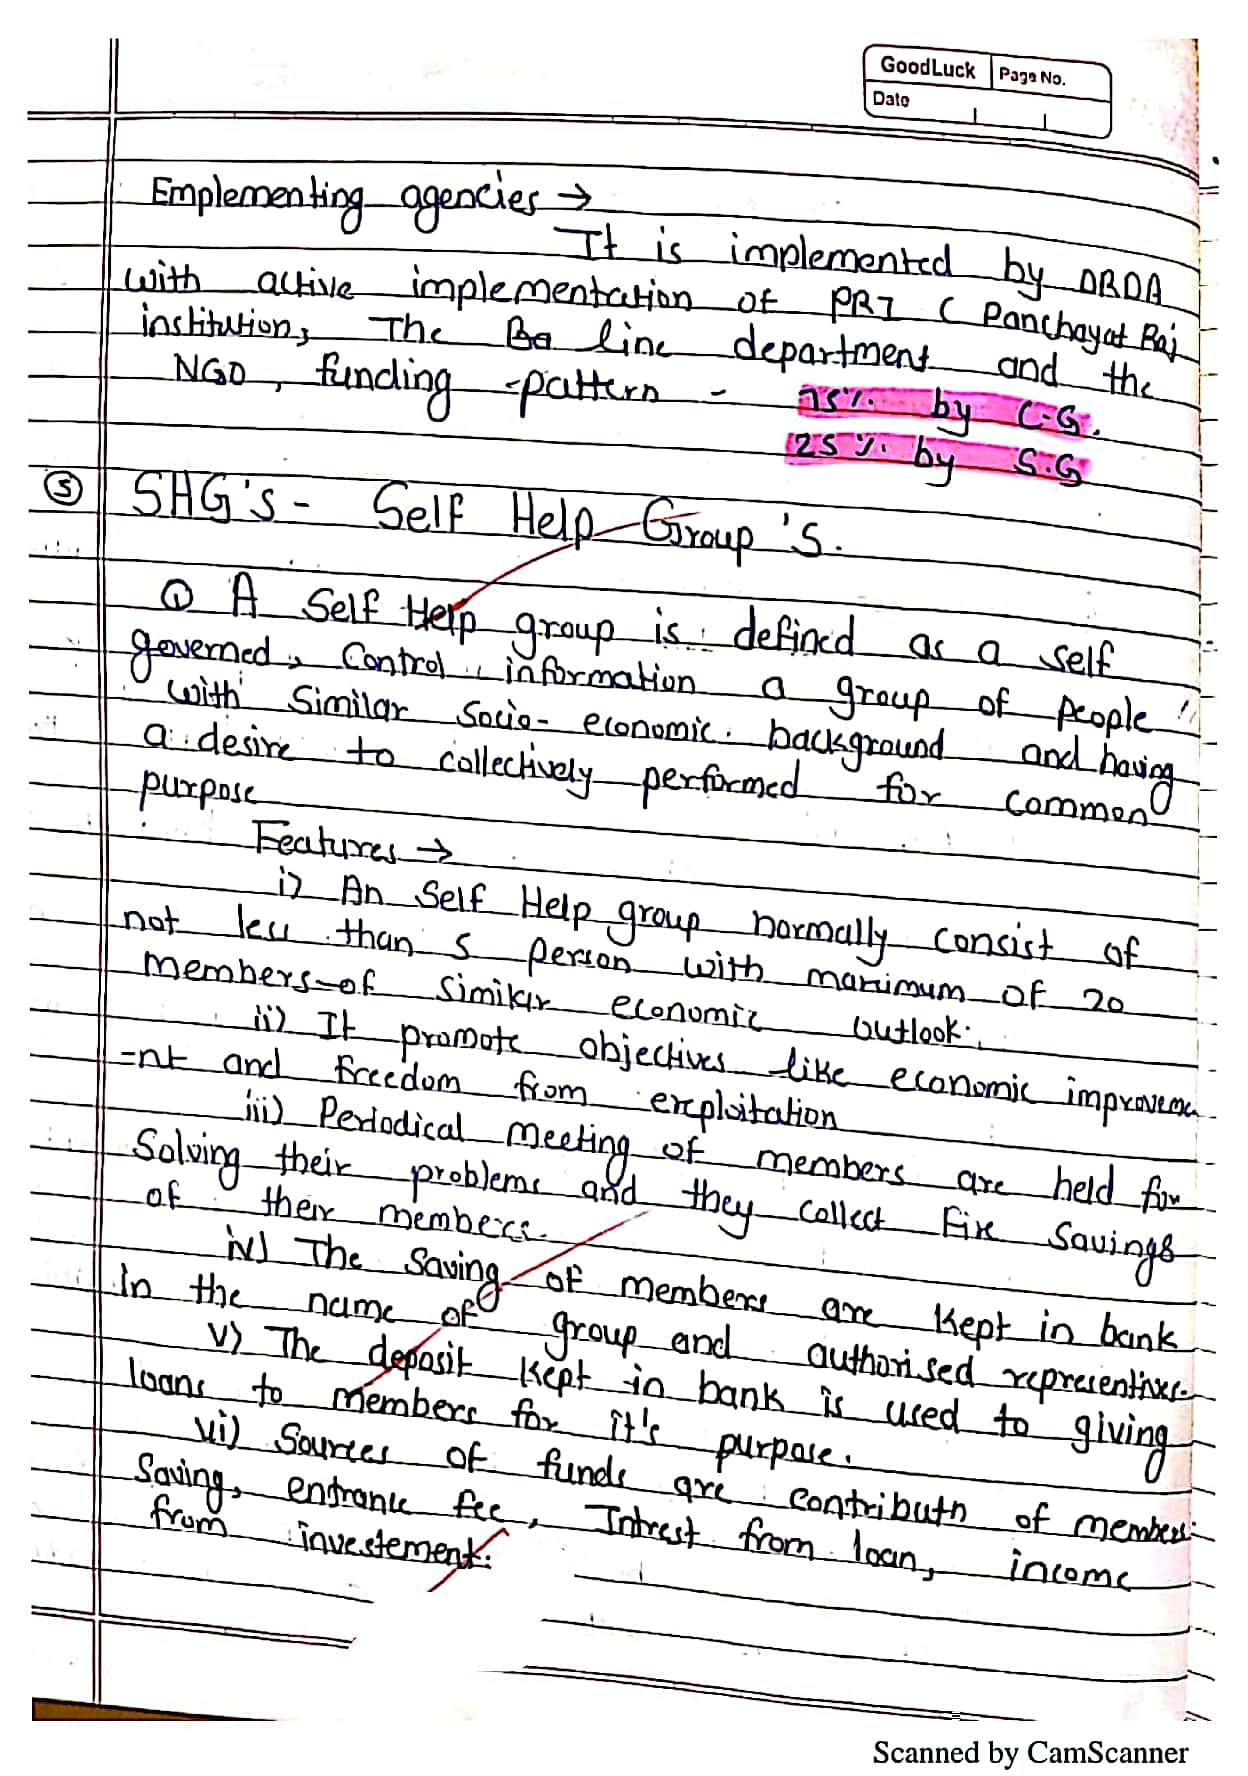 GoodLuck Page No.
Date
Emplementing agencies →
It is implemented by DRDA
with active implementation of PRI ( Panchayat Raj
institution, The Ba line department and the
NGO, funding pattern - 75%. by C.G.
25%. by S.G
5 SHG's - Self Help Group's.
Q A Self Help group is defined as a self
governed, control information a group of people
with similar socio-economic background and having
a desire to collectively performed for common
purpose
Features →
i) An Self Help group normally consist of
not less than 5 person with maximum of 20
members of similar economic outlook.
ii) It promote objectives like economic improveme
=nt and freedom from exploitation
iii) Periodical meeting of members are held for
Solving their problems and they collect fix savings
of their members.
iv) The Saving of members are kept in bank
in the name of group and authorised representives.
v) The deposit kept in bank is used to giving
loans to members for it's purpose.
vi) Sources of funds are contributn of members
Saving, entrance fee, Intrest from loan, income
from investement.
Scanned by CamScanner